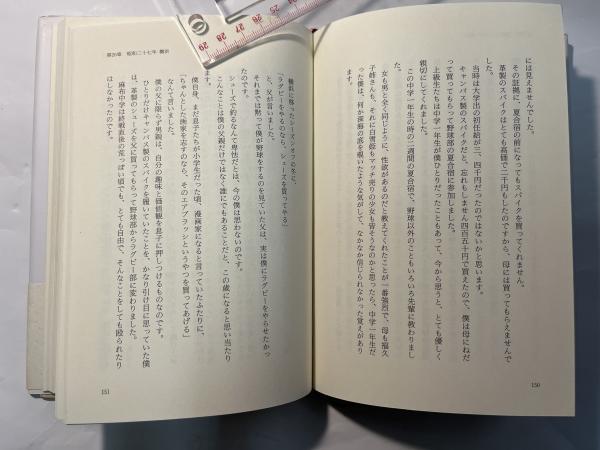 には見えませんでした。
その証拠に、夏合宿の前になってもスパイクを買ってくれません。
革製のスパイクはとても高価で二千円もしたのですから、母には買ってもらえませんで
した。
当時は大学出の初任給が三、四千円だったのではないかと思います。
キャンバス製のスパイクだと、忘れもしません四百五十円で買えたので、僕は母にねだ
って買ってもらって野球部の夏合宿に参加しました。
上級生たちは中学一年生が僕ひとりだったこともあって、今から思うと、とても優しく
親切にしてくれました。
この中学一年生の時の二週間の夏合宿で、野球以外のこともいろいろ先輩に教わりまし
た。
女も男と全く同じように、性欲があるのだと教えてくれたことが一番強烈で、母も福久
子姉さんも、それに白雪姫もマッチ売りの少女も皆そうなのかと思ったら、中学一年生だ
った僕は、何か深淵の底を覗いたような気がして、なかなか信じられなかった覚えがあり
ます。
150
第26章 昭和二十七年 横浜
横浜に移ったシーズンオフの冬に、
「ラグビーをやるのなら、シューズを買ってやる」
と、父が言いました。
それまでは黙って僕が野球をするのを見ていた父は、実は僕にラグビーをやらせたかっ
たのです。
シューズで釣るなんて卑怯だとは、今の僕は思わないのです。
こんなことは僕の父親だけではなく誰にでもあることだと、この歳になると思い当たり
ます。
僕自身、まだ息子たちが小学生だった頃、漫画家になると言っていたふたりに、
「ちゃんとした画家を志すのなら、そのエアブラッシというやつを買ってあげる」
なんて言いました。
僕の父に限らず男親は、自分の趣味と価値観を息子に押しつけるものなのです。
ひとりだけキャンバス製のスパイクを履いていたことを、かなり引け目に思っていた僕
は、革製のシューズを父に買ってもらって野球部からラグビー部に変わりました。
麻布中学は終戦直後の荒っぽい頃でも、とても自由で、そんなことをしても殴られたり
はしなかったのです。
151
25
26
27
28
29